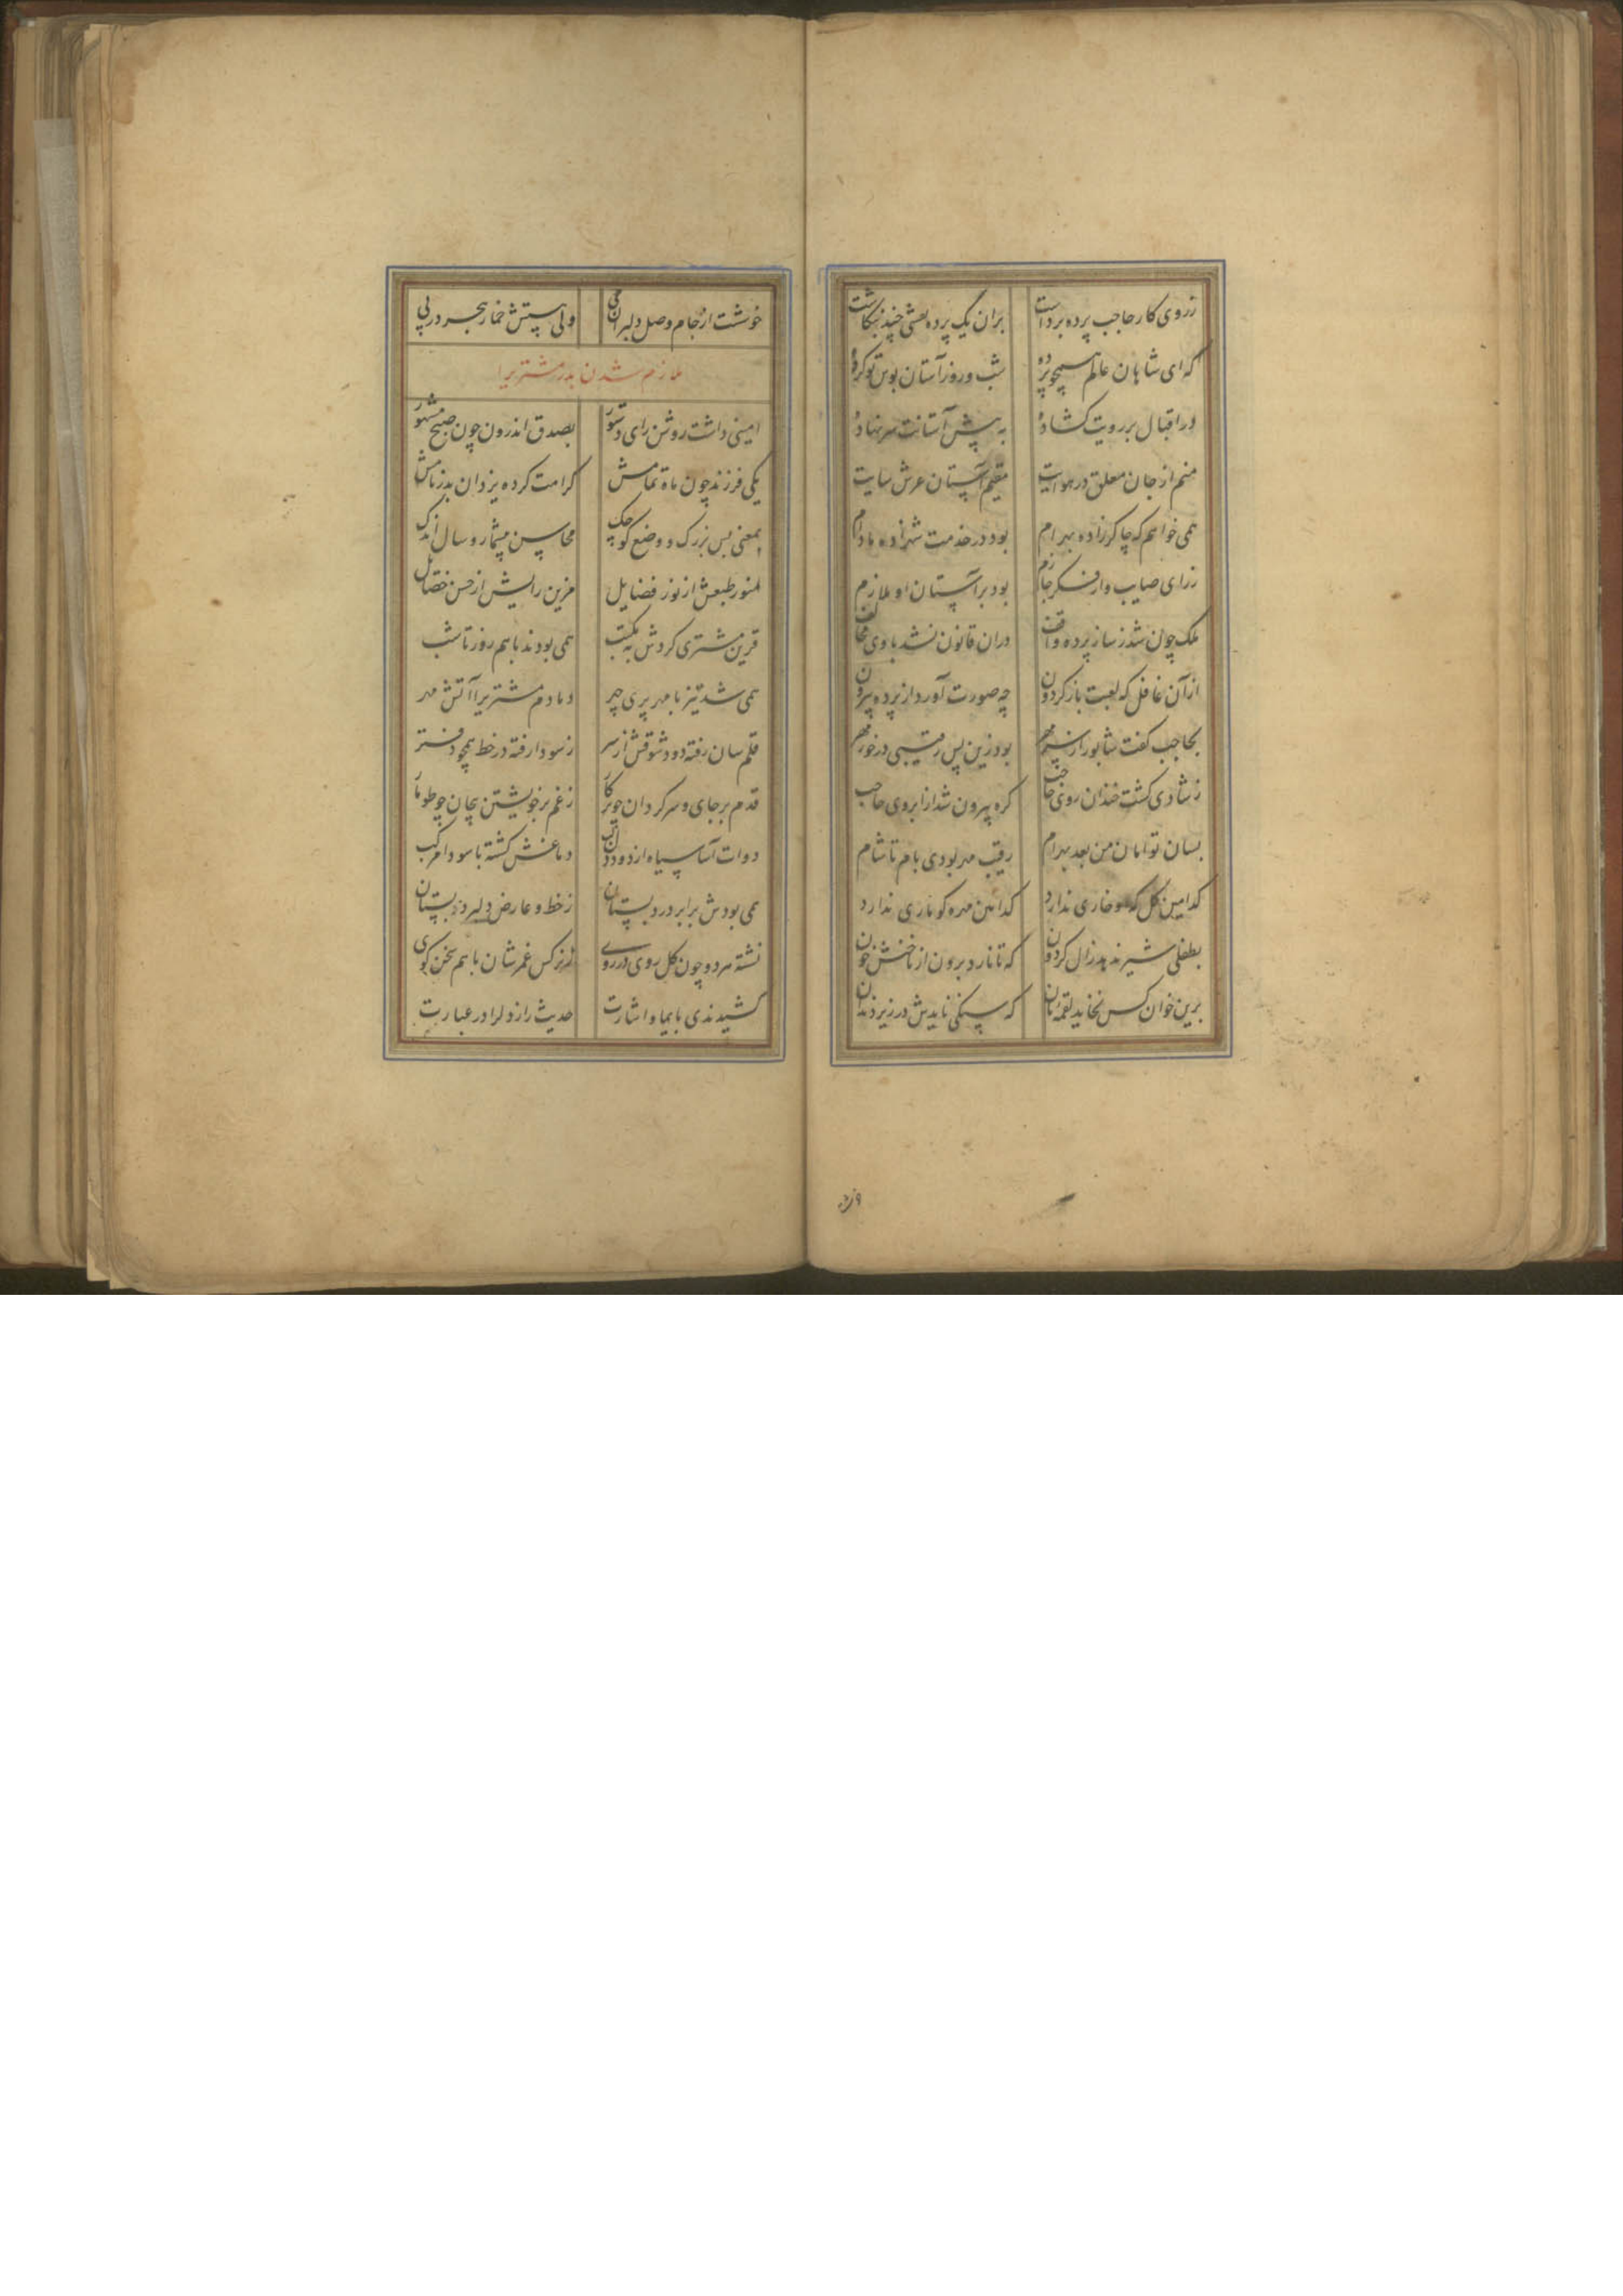 زروی کار حاجب پرده برداشت بران یک پرده نقشی چند بنگاشت
که ای شاهان عالم همچو پرده شب و روز آستان بوس تو کرده
در اقبال بر رویت گشاده به پیش آستانت سر نهاده
منم از جان معلق در هوایت مقیم آستان عرش سایت
همی خواهم که چاکرزاده بهرام بود در خدمت شهزاده مادام
زرای صایب و از فکر جازم بود بر آستان او ملازم
ملک چون شد ز ساز پرده واقف دران قانون نشد با وی مخالف
از آن غافل که لعبت باز گردون چه صورت آورد از پرده بیرون
بحاجب گفت شاپور از سر مهر بود زین پس رقیبی در خور مهر
زشادی گشت خندان روی حاجب گره بیرون شد از ابروی حاجب
بسان توامان من بعد بهرام رقیب مهر بودی بام تا شام
کدامین گل که او خاری ندارد کدامین مهره کو ماری ندارد
بطفلی شیر ندهد زال گردون که تا نارد برون از ناخنش خون
برین خوان کس نخاید لقمه نان که سنگی نایدش در زیر دندان
خوشت از جام وصل دلبران می ولی هستش خمار هجر در پی
ملازم شدن بدر مشتریرا
امینی داشت روشن رای دستور بصدق اندرون چون صبح مشهور
یکی فرزند چون ماه تمامش کرامت کرده یزدان بدر نامش
بمعنی بس بزرک و وضع کوچک محاسن بیشمار و سال اندک
منور طبعش از نور فضایل مزین رایش از حسن خصایل
قرین مشتری کردش به مکتب همی بودند با هم روز تا شب
همی شد تیز با مهر پری چهر دمادم مشتریرا آتش مهر
قلم سان رفته دود شوقش از سر زسودا رفته در خط همچو دفتر
قدم بر جای و سرگردان چو پرگار زغم بر خویشتن پیچان چو طومار
دوات آسا سیاه از دود دل لب دماغش گشته با سودا مرکب
همی بودش برابر در دبستان زخط و عارض دلبر دبستان
نشسته هر دو چون گل روی در روی زنرگس غمزشان با هم سخن گوی
کشیدندی بایما و اشارت حدیث راز دلرا در عبارت